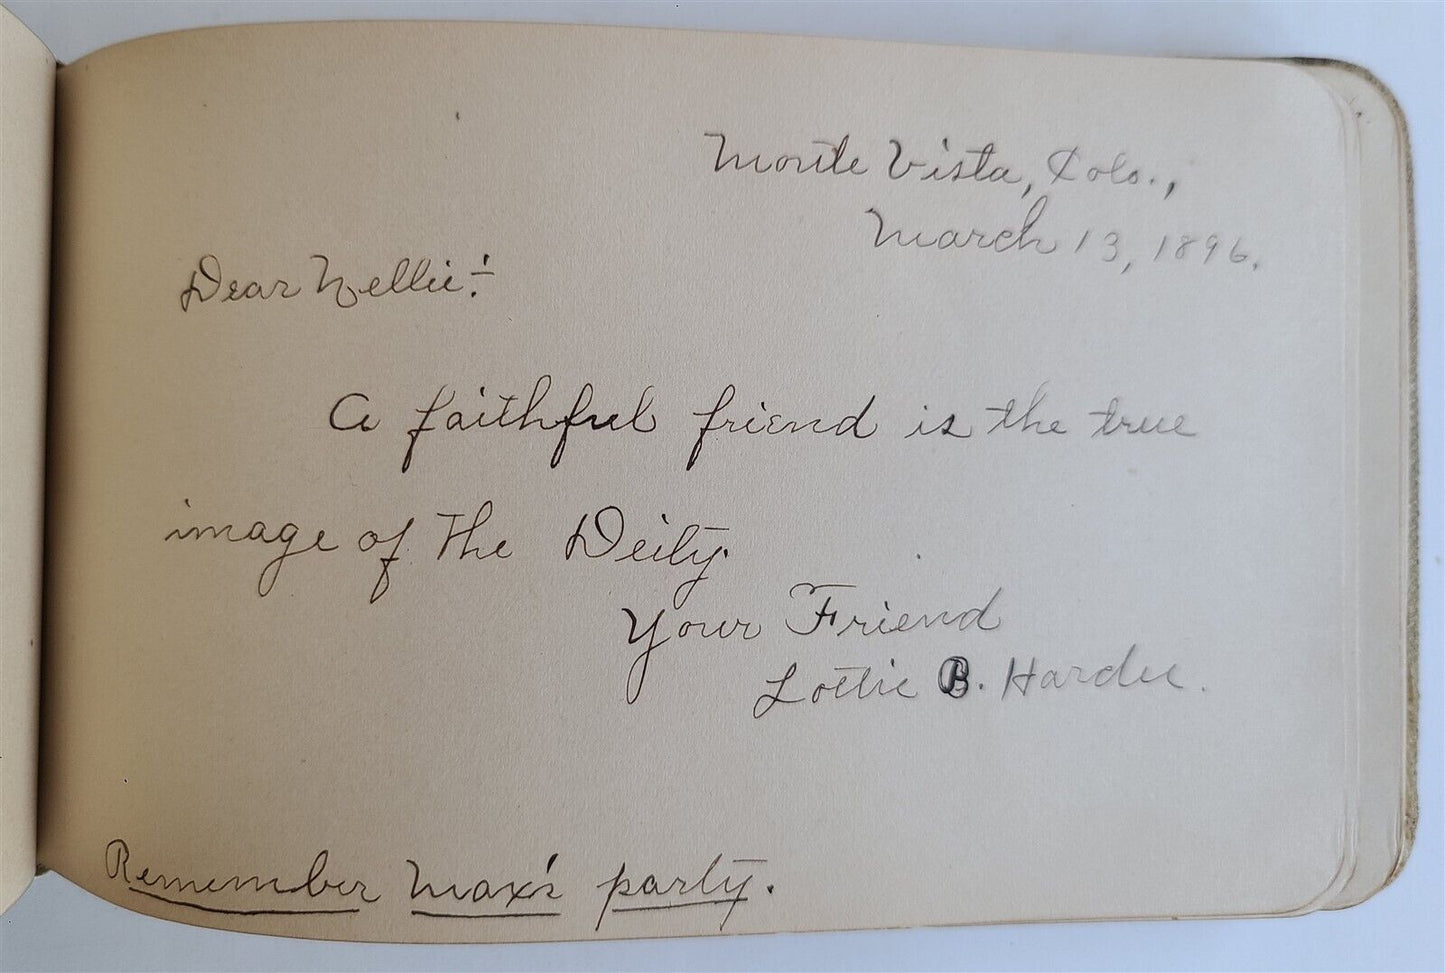 Monte Vista, Colo.,
March 13, 1896.
Dear Nellie:-
A faithful friend is the true
image of The Deity.
Your Friend
Lottie B. Hardee.
Remember Max's party.